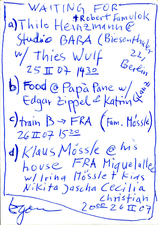 WAITING FOR
+ Robert Famulok
a) Thilo Heinzmann @
Studio BARA (Biesentaler 22,
w/ Thies Wulf Berlin
25 II 07 1430
b) Food @ Papa Pane w/
Edgar Zippel & Katrin
c) train B → FRA (Fam. Mössle)
26 II 07 1520
d) Klaus Mössle @ his
house FRA Miquelallee
w/ Irina Mössle + kids
Nikita Jascha Cecilia
Christian
2000 26 II 07